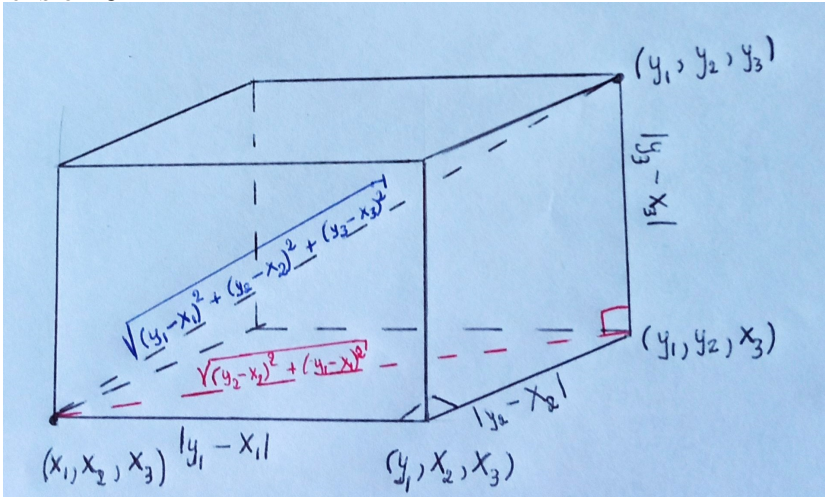 (y₁, y₂, y₃)
|y₃ - x₃|
√(y₁-x₁)² + (y₂-x₂)² + (y₃-x₃)²
√(y₂-x₂)² + (y₁-x₁)²
(y₁, y₂, x₃)
|y₂ - x₂|
(x₁, x₂, x₃)
|y₁ - x₁|
(y₁, x₂, x₃)